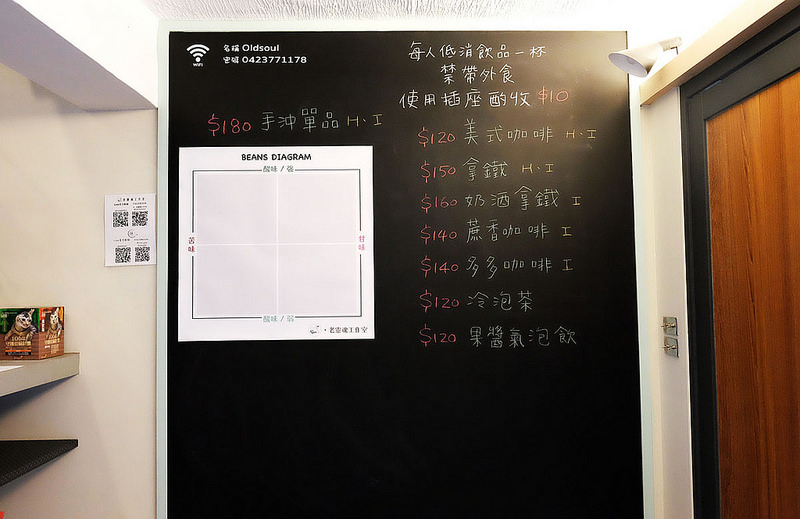 名稱 Oldsoul
密碼 0423771178
WiFi
每人低消飲品一杯
禁帶外食
使用插座酌收 $10
$180 手沖單品 H、I
BEANS DIAGRAM
酸味 / 強
苦味
甘味
酸味 / 弱
老靈魂工作室
$120 美式咖啡 H、I
$150 拿鐵 H、I
$160 奶酒拿鐵 I
$140 蔗香咖啡 I
$140 多多咖啡 I
$120 冷泡茶
$120 果醬氣泡飲